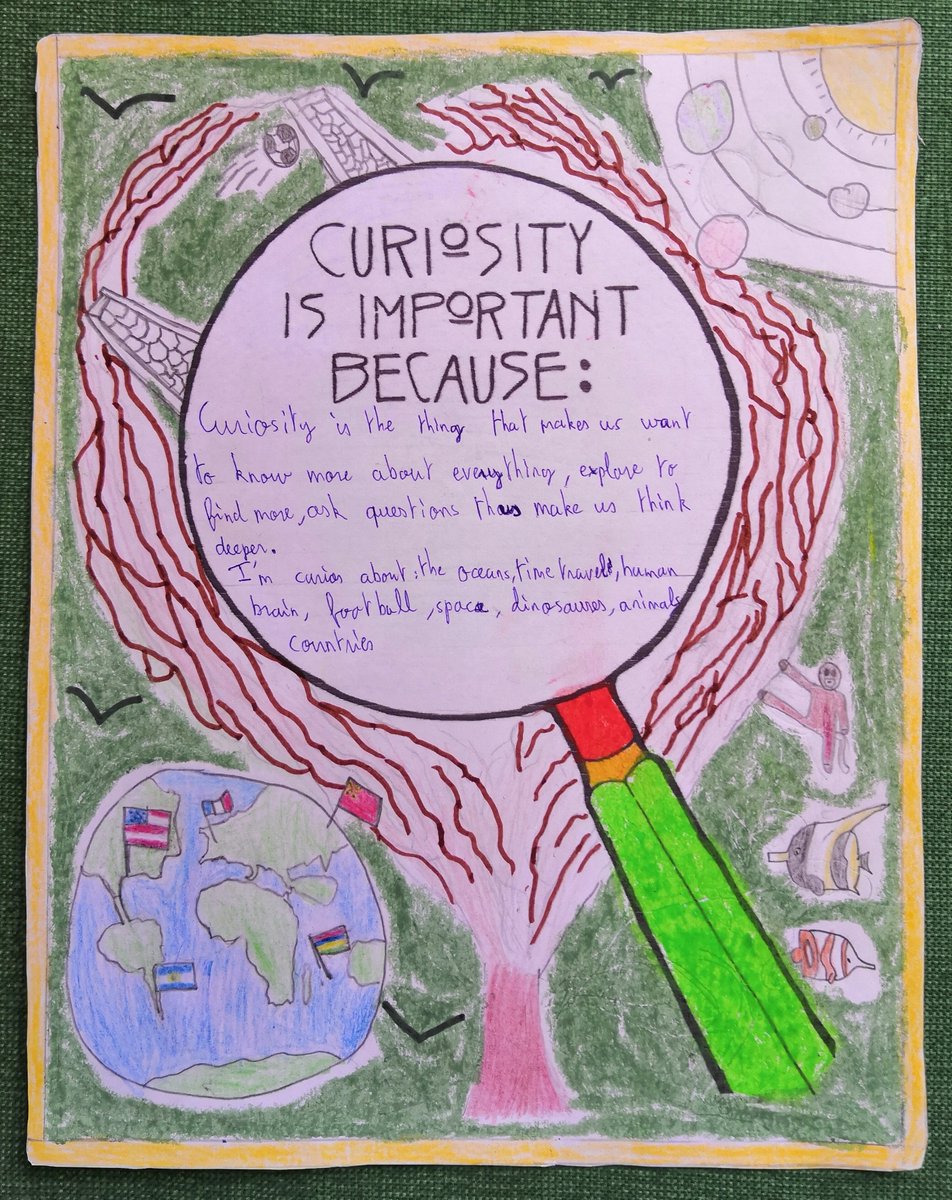 CURIOSITY
IS IMPORTANT
BECAUSE:
Curiosity is the thing that makes us want
to know more about everything, explore to
find more, ask questions thas make us think
deeper.
I'm curios about: the oceans, time travel, human
brain, football, space, dinosaures, animals
countries